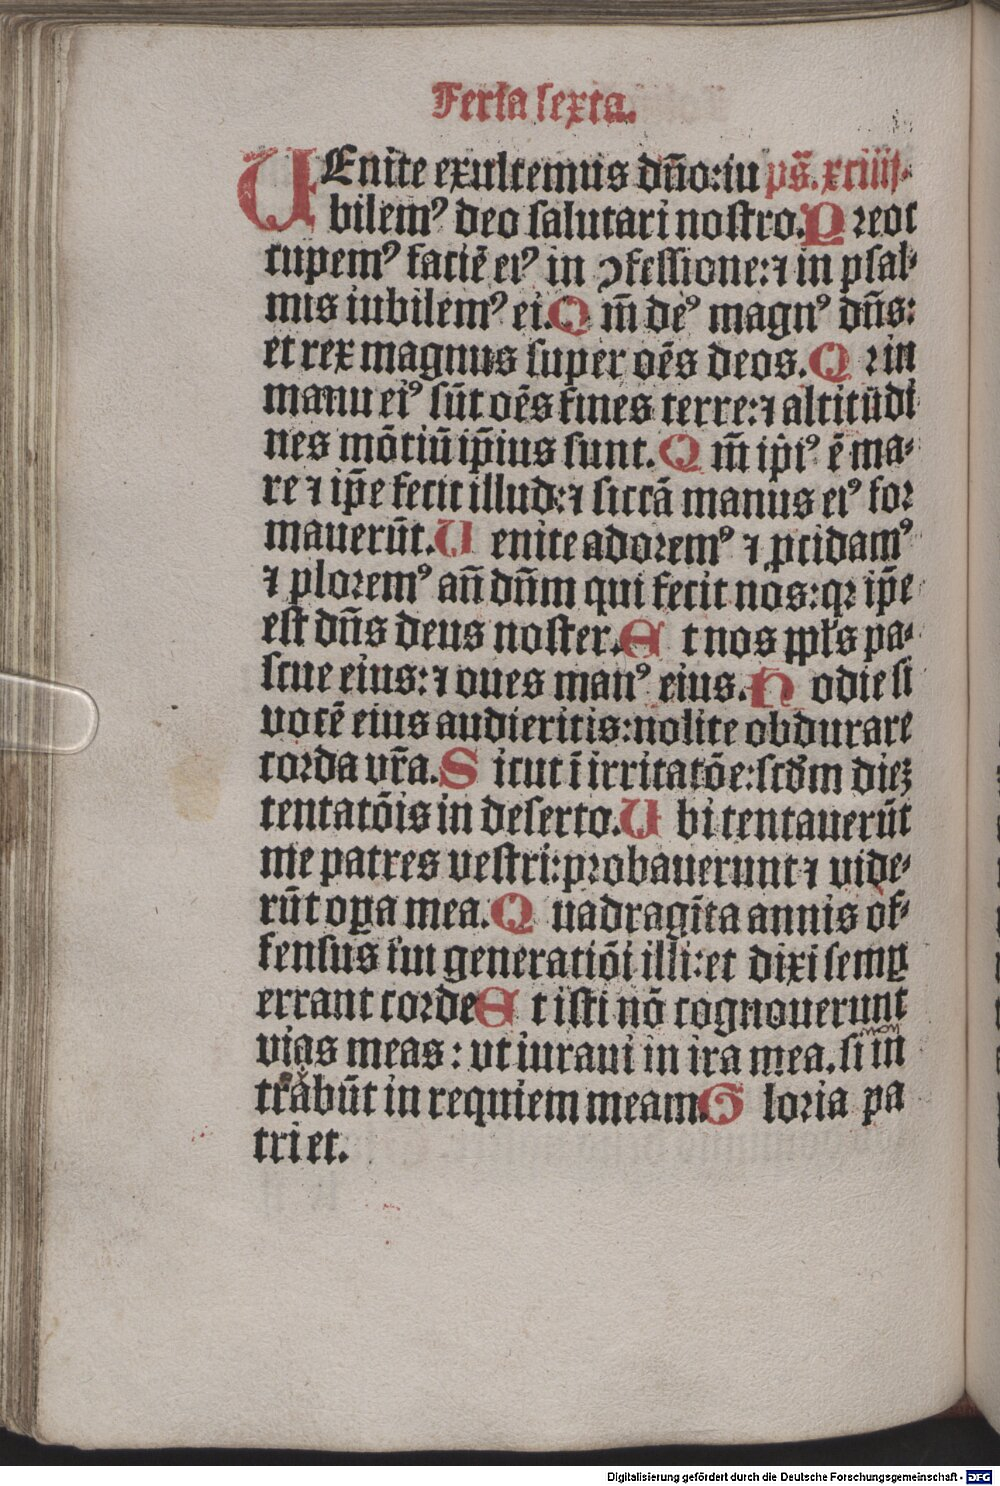 Feria sexta.
UEnite exultemus dn̄o:iu ps̄. xciiij.
bilemꝰ deo salutari nostro. Preoc
cupemꝰ faciē eiꝰ in ꝯfessione:⁊ in psal⸗
mis iubilemꝰ ei. Qm̄ deꝰ magnꝰ dn̄s:
et rex magnus super oēs deos. Qꝛ in
manu eiꝰ sūt oēs fines terre:⁊ altitūdi
nes mōtiū ip̄ius sunt. Qm̄ ip̄iꝰ ē ma⸗
re ⁊ ip̄e fecit illud:⁊ siccā manus eiꝰ foꝛ
mauerūt. Uenite adoꝛemꝰ ⁊ ꝓcidamꝰ
⁊ ploꝛemꝰ an̄ dn̄m qui fecit nos:qꝛ ip̄e
est dn̄s deus noster. Et nos ppl̄s pa⸗
scue eius:⁊ oues manꝰ eius. Hodie si
vocē eius audieritis:nolite obdurare
coꝛda vr̄a. Sicut ī irritatōe:scd̄m dieꝫ
tentatōis in deserto. Ubi tentauerūt
me patres vestri:pꝛobauerunt ⁊ vide⸗
rūt oꝑa mea. Quadragīta annis of⸗
fensus fui generatiōi illi:et dixi semꝑ
errant coꝛde Et isti nō cognouerunt
vias meas : vt iuraui in ira mea. si in
trābūt in requiem meam. Gloꝛia pa
tri et.
Digitalisierung gefördert durch die Deutsche Forschungsgemeinschaft - DFG